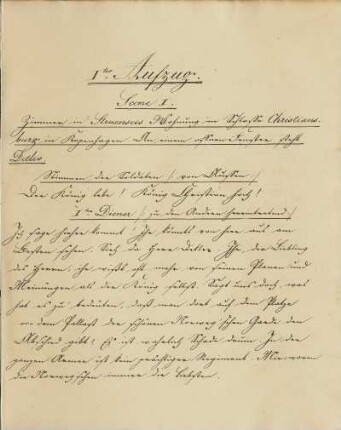 Iter Aufzug.
Scene I.
Zimmer in Struensees Wohnung im Schloße Christians-
burg in Kopenhagen An einem offnen Fenster steht
Detlev.
Stimmen der Soldaten / von Außen /
Der König lebe! König Christian hoch!
Iter Diener / zu den Andern hereintretend /
Ihr Herrn kommt! Ihr könnt von hier aus am
Besten sehen. Sieh da Herr Detlev Ihr, der Liebling
des Herren, ihr wißt ja mehr von seinen Planen und
Meinungen als der König selbst. Sagt uns doch, was
hat es zu bedeuten, daß man dort auf dem Platze
vor dem Pallast der schönen Norweg'schen Garde den
Abschied gibt! Es ist wahrlich Schade drum. In der
ganzen Armee ist kein prächtiger Regiment. Mir waren
die Norweg'schen immer die Liebsten.